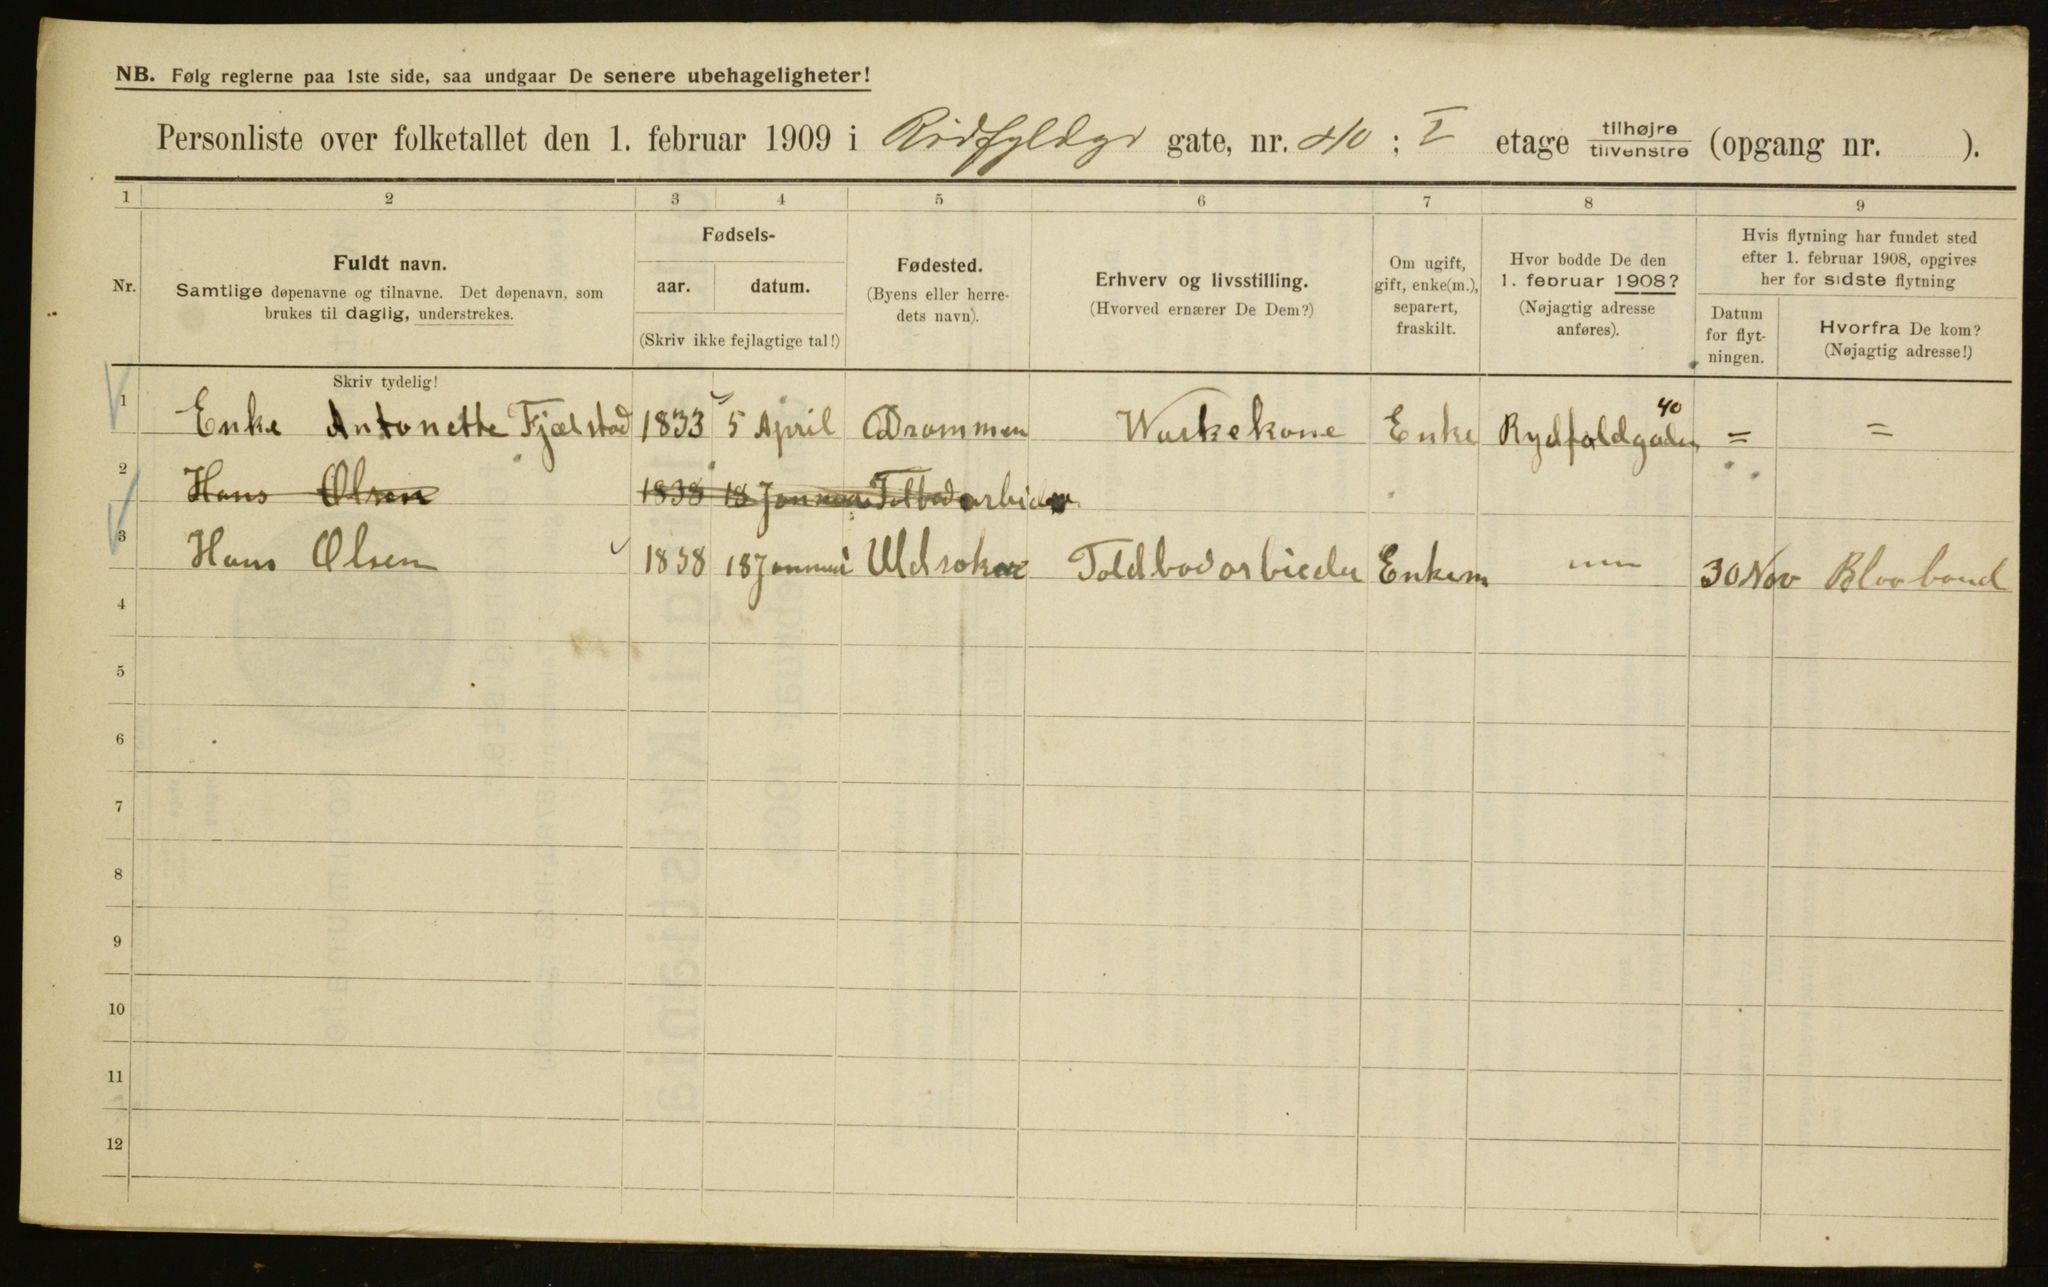 NB. Følg reglerne paa 1ste side, saa undgaar De senere ubehageligheter!
Personliste over folketallet den 1. februar 1909 i Ridfyldgt gate, nr. 40 ; I etage tilhøjre tilvenstre (opgang nr. ).
1 2 3 4 5 6 7 8 9
Nr.
Fuldt navn.
Samtlige døpenavne og tilnavne. Det døpenavn, som
brukes til daglig, understrekes.
Skriv tydelig!
Fødsels-
aar. datum.
(Skriv ikke fejlagtige tal!)
Fødested.
(Byens eller herre-
dets navn).
Erhverv og livsstilling.
(Hvorved ernærer De Dem?)
Om ugift,
gift, enke(m.),
separert,
fraskilt.
Hvor bodde De den
1. februar 1908?
(Nøjagtig adresse
anføres).
Hvis flytning har fundet sted
efter 1. februar 1908, opgives
her for sidste flytning
Datum
for flyt-
ningen.
Hvorfra De kom?
(Nøjagtig adresse!)
1 Enke Antonette Fjælstad 1833 5 April Drammen Waskekone Enke Rydfoldgaden 40 = =
2 Hans Olsen 1838 18 Januar Tolbodarbider
3 Hans Olsen 1838 18 Januar Toldbodarbieder Enkem 30 Nov
4
5
6
7
8
9
10
11
12